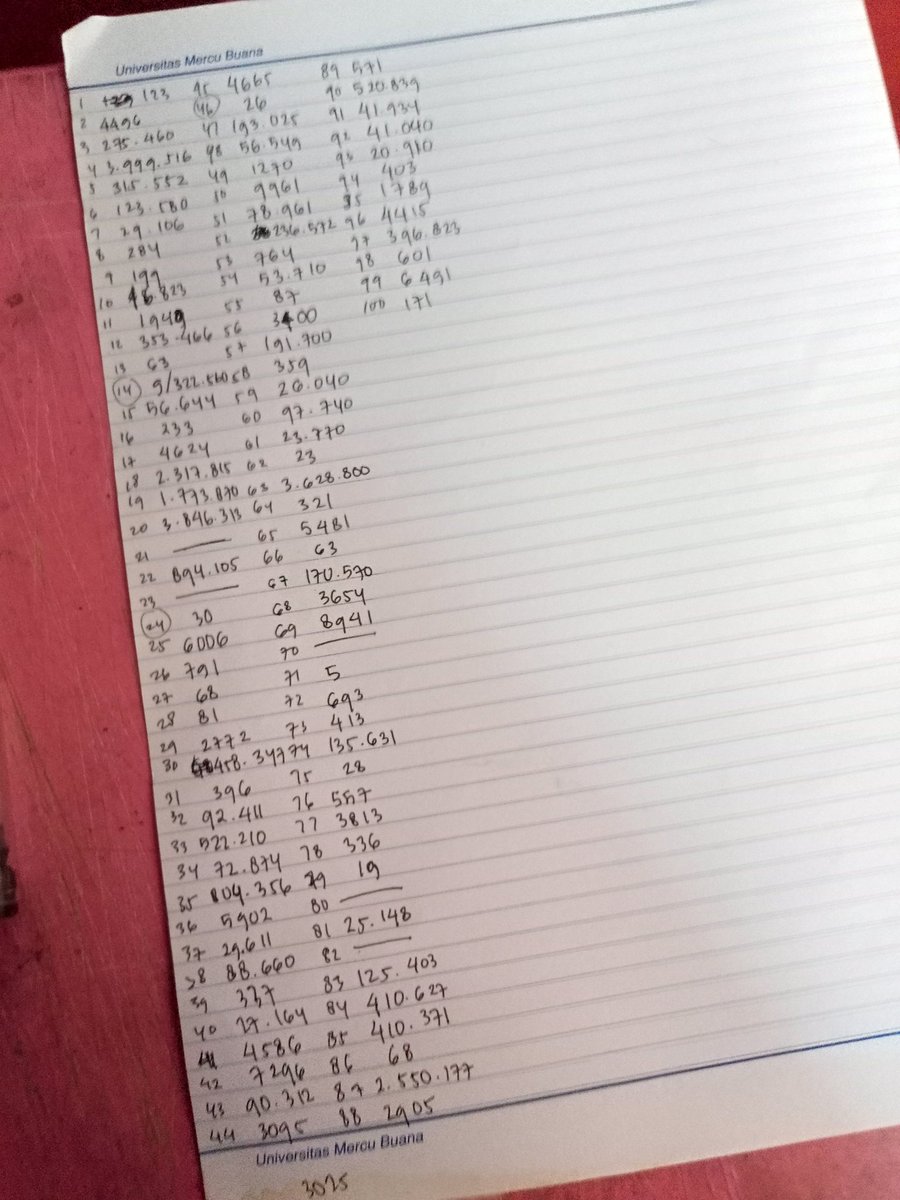 Universitas Mercu Buana
1 123 45 4665 89 571
2 4496 46 26 90 520.839
3 275.460 47 193.025 91 41.934
4 3.999.516 48 56.549 92 41.040
5 315.552 49 1270 93 20.910
6 123.580 50 9961 94 403
7 29.106 51 78.961 95 1789
8 284 52 236.572 96 4415
9 199 53 764 97 396.823
10 46.823 54 53.710 98 601
11 1949 55 87 99 6491
12 353.466 56 3400 100 171
13 63 57 191.700
14 9/322.560 58 359
15 56.644 59 26.040
16 233 60 97.740
17 4624 61 23.770
18 2.317.815 62 23
19 1.773.870 63 3.628.800
20 3.846.313 64 321
21 — 65 5481
22 894.105 66 63
23 — 67 170.570
24 30 68 3654
25 6006 69 8941
26 791 70 —
27 68 71 5
28 81 72 693
29 2772 73 413
30 458.347 74 135.631
31 396 75 28
32 92.411 76 557
33 522.210 77 3813
34 72.874 78 336
35 804.356 79 19
36 5902 80 —
37 29.611 81 25.148
38 88.660 82 —
39 337 83 125.403
40 27.164 84 410.627
41 4586 85 410.371
42 7296 86 68
43 90.312 87 2.550.177
44 3095 88 2905
Universitas Mercu Buana
3025